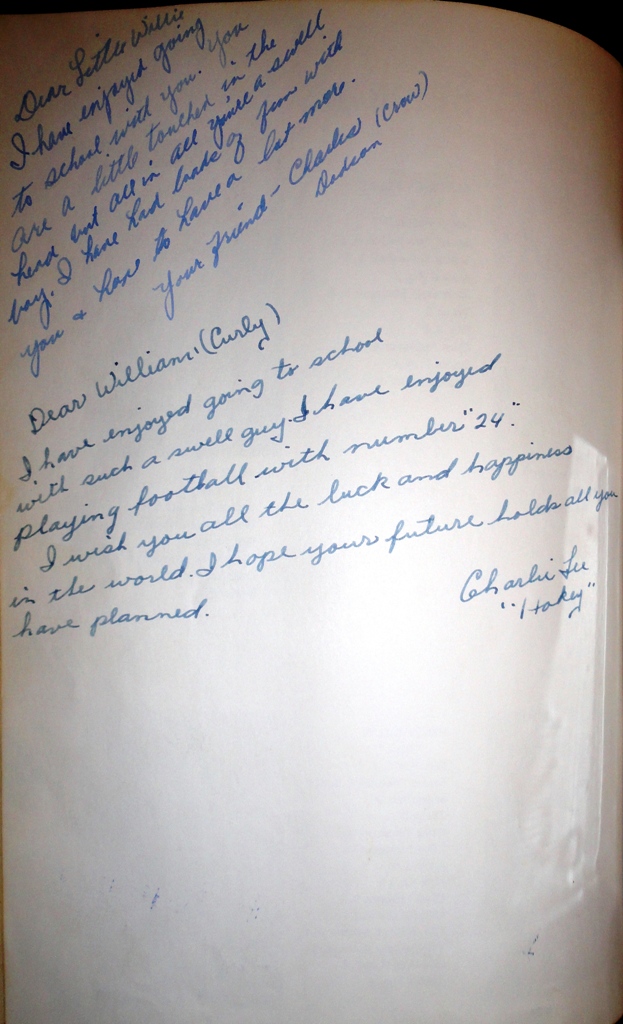 Dear Little Willie
I have enjoyed going
to school with you. You
are a little touched in the
head but all in all you're a swell
boy. I have had loads of fun with
you & hope to have a lot more.
Your friend - Charles (Crow)
Dodson
Dear William, (Curly)
I have enjoyed going to school
with such a swell guy. I have enjoyed
playing football with number "24".
I wish you all the luck and happiness
in the world. I hope your future holds all you
have planned.
Charlie Lee
"Hokey"